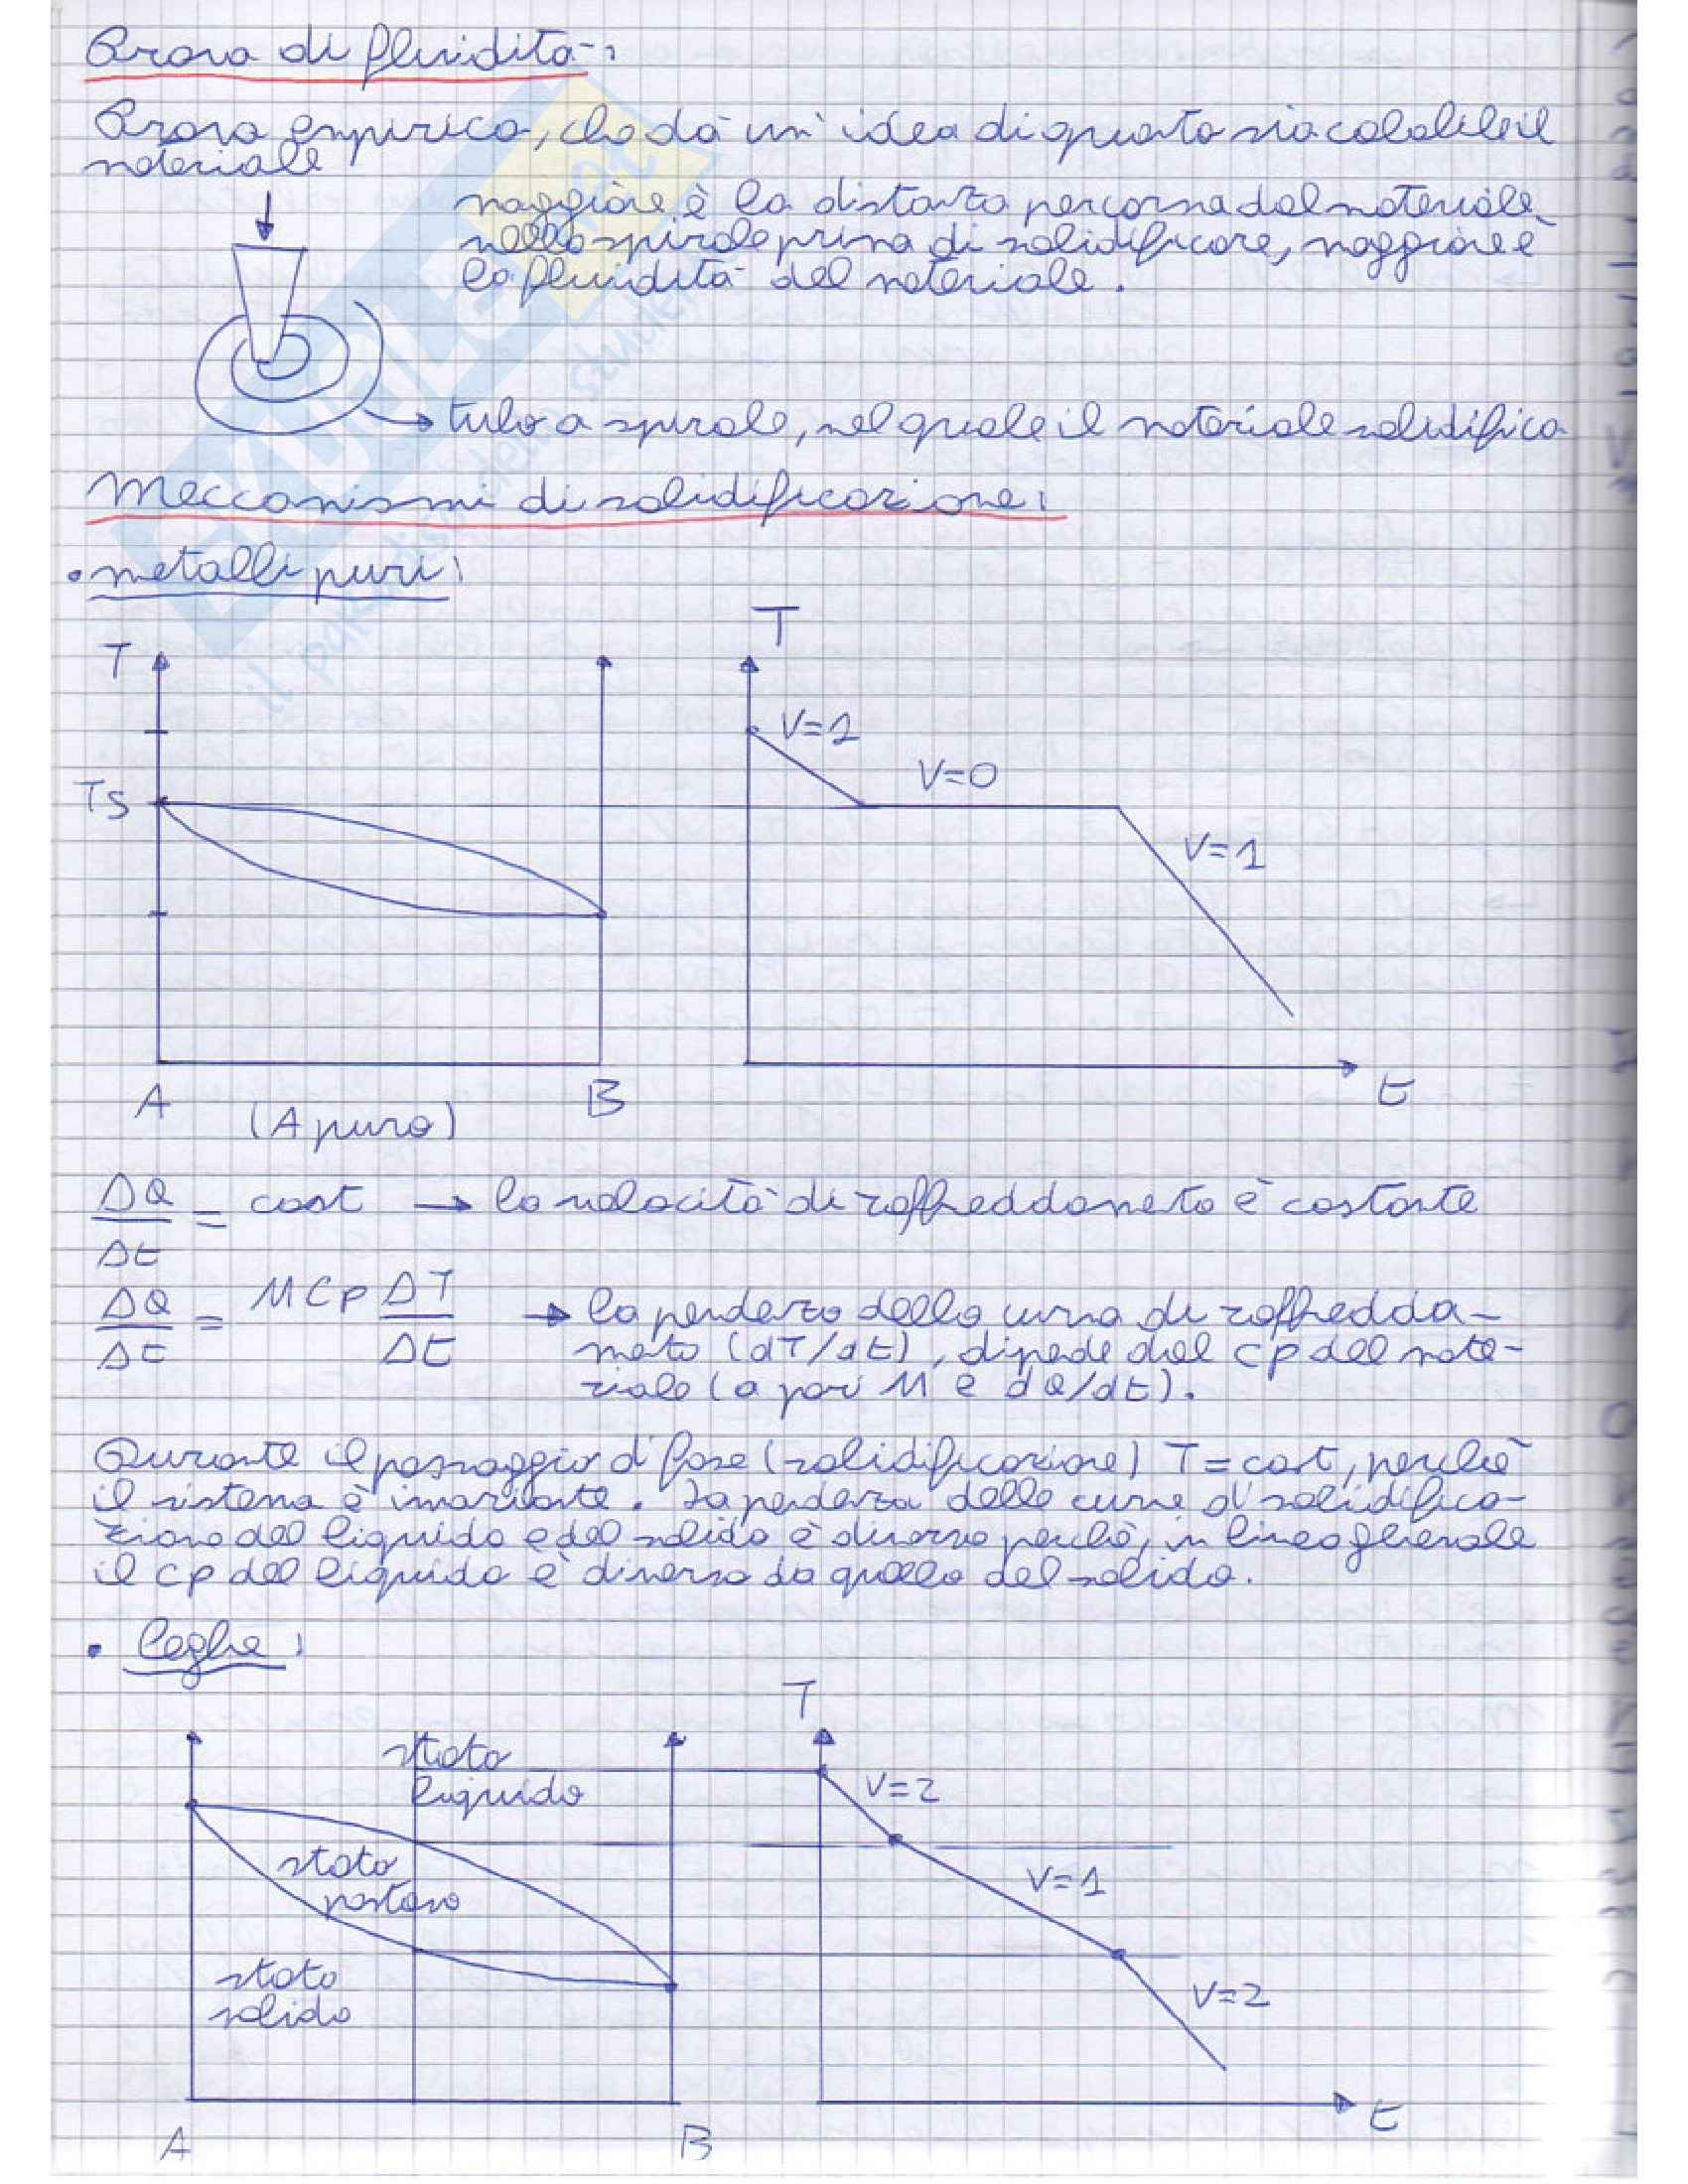 Prova di fluidità:
Prova empirica, che dà un'idea di quanto sia colabile il
materiale
maggiore è la distanza percorsa dal materiale
nella spirale prima di solidificare, maggiore è
la fluidità del materiale.
tubo a spirale, nel quale il materiale solidifica
Meccanismi di solidificazione:
• metalli puri:
T
T
V=1
TS
V=0
V=1
A
B
t
(A puro)
ΔQ/Δt = cost → la velocità di raffreddamento è costante
ΔQ/Δt = M Cp ΔT/Δt → la pendenza della curva di raffredda-
mento (dT/dt), dipende dal cp del mate-
riale (a pari M e dQ/dt).
Durante il passaggio di fase (solidificazione) T=cost, perchè
il sistema è invariante. La pendenza delle curve di solidifica-
zione del liquido e del solido è diversa perchè, in linea generale
il cp del liquido è diverso da quello del solido.
• Leghe:
T
stato
liquido
V=2
stato
pastoso
V=1
stato
solido
V=2
t
A
B